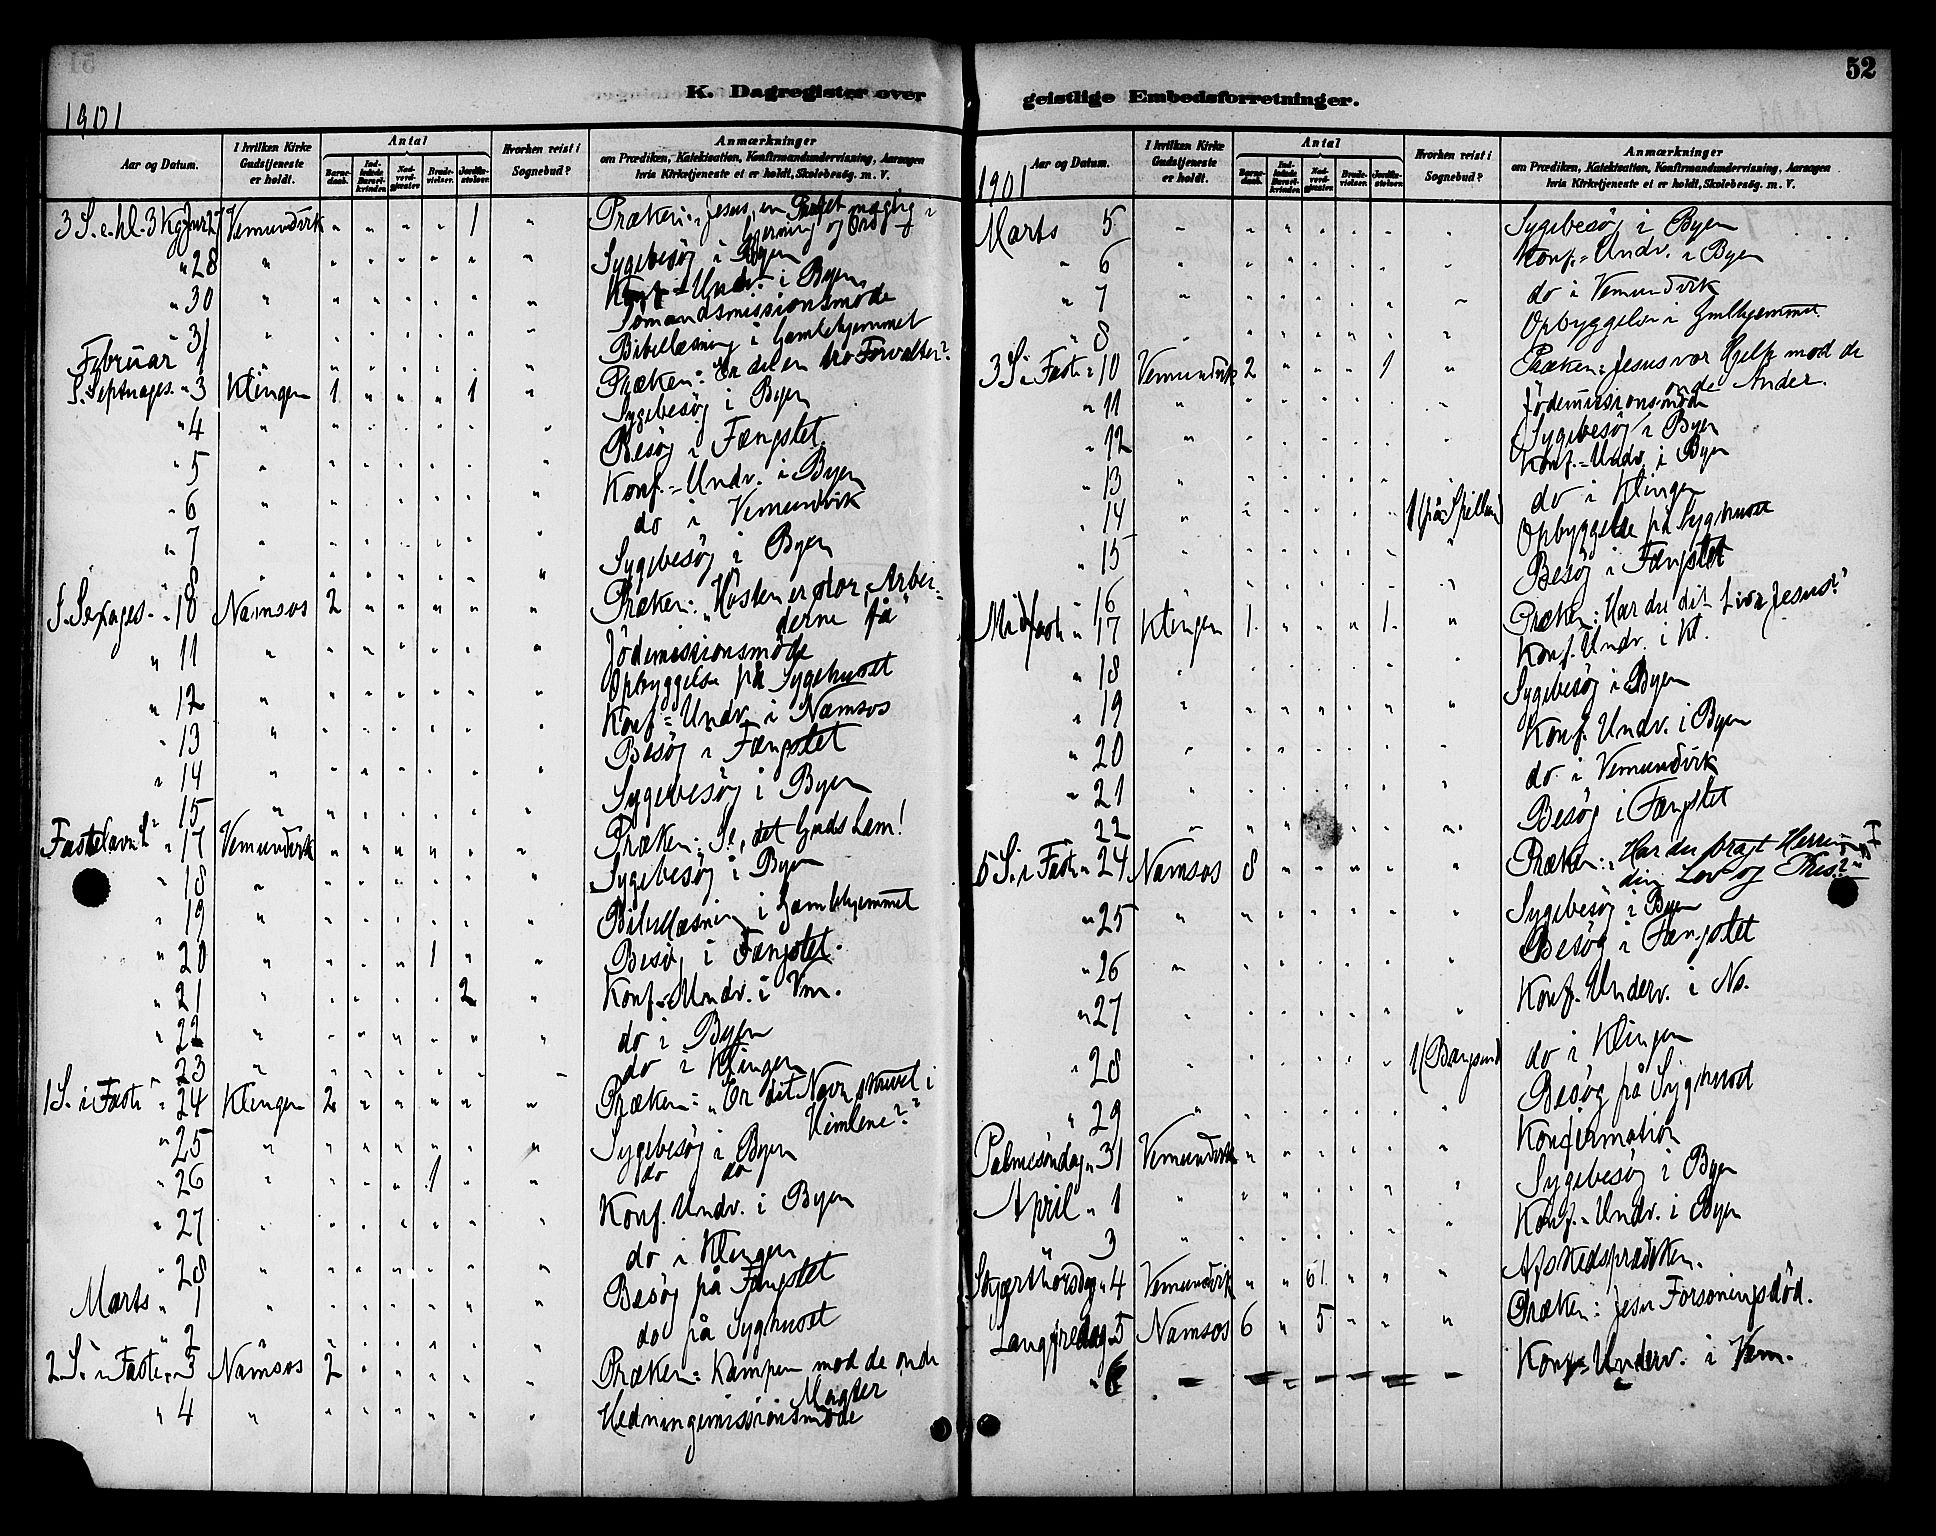 51
K. Dagregister over
1901
Aar og Datum.
I hvilken Kirke Gudstjeneste er holdt.
Antal
Barnedaab.
Indledede Barselkvinder.
Nadverdgjæster.
Brudevielser.
Jordfæstelser.
Hvorhen reist i Sognebud?
Anmærkninger
om Prædiken, Katekisation, Konfirmandundervisning, Aarsagen
hvis Kirketjeneste et er holdt, Skolebesøg. m. V.
3 S. e. hl. 3 Kg Jnr 27 Vemundvik " " " " 1 " Præken: "Jesus, en Profet mægtig i
Gjerning og Ord"
" 28 " " " " " " " Sygebesøg i Byen
" 30 " " " " " " " Konf.-Undv. i Byen
" 31 " " " " " " " Sømandsmissionsmøde
Februar 1 " " " " " " " Bibellæsning i Gamlehjemmet
S. Septuages. " 3 Klingen 1 " " " 1 " Præken: Er du en tro Forvalter?
" 4 " " " " " " " Sygebesøg i Byen
" 5 " " " " " " " Besøg i Fængslet
" 6 " " " " " " " Konf.-Undv. i Byen
" 7 " " " " " " " do i Vemundvik
" 8 " " " " " " " Sygebesøg i Byen
S. Sexages. " 10 Namsos 2 " " " " " Præken: "Høsten er stor, Arbei-
derne få"
" 11 " " " " " " " Jødemissionsmøde
" 12 " " " " " " " Opbyggelse på Sygehuset
" 13 " " " " " " " Konf-Undv. i Namsos
" 14 " " " " " " " Besøg i Fængslet
" 15 " " " " " " " Sygebesøg i Byen
Fastelavns S. " 17 Vemundvik " " " " " " Præken: Se, det Guds Lam!
" 18 " " " " " " " Sygebesøg i Byen
" 19 " " " " " " " Bibellæsning i Gamlehjemmet
" 20 " " " " 1 " " Besøg i Fængslet.
" 21 " " " " " 2 " Konf.-Undv. i Vm.
" 22 " " " " " " " do i Byen
" 23 " " " " " " " do i Klingen
1 S. i Faste " 24 Klingen 2 " " " " " Præken: "Er dit Navn skrevet i
Himlene?"
" 25 " " " " " " " Sygebesøg i Byen
" 26 " " " " 1 " " do do
" 27 " " " " " " " Konf. Undv. i Byen
" 28 " " " " " " " do i Klingen
Marts " 1 " " " " " " " Besøg på Fængslet
" 2 " " " " " " " do på Syghuset
2 S. i Faste " 3 Namsos 2 " " " " " Præken: Kampen mod de onde
Magter
" 4 " " " " " " " Hedningemissionsmøde
52
geistlige Embedsforretninger.
1901
Aar og Datum.
I hvilken Kirke Gudstjeneste er holdt.
Antal
Barnedaab.
Indledede Barselkvinder.
Nadverdgjæster.
Brudevielser.
Jordfæstelser.
Hvorhen reist i Sognebud?
Anmærkninger
om Prædiken, Katekisation, Konfirmandundervisning, Aarsagen
hvis Kirketjeneste et er holdt, Skolebesøg. m. V.
Marts 5 " " " " " " " Sygebesøg i Byen
" 6 " " " " " " " Konf.-Undv. i Byen
" 7 " " " " " " " do i Vemundvik
" 8 " " " " " " " Opbyggelse i Gmlhjemmet
3 S. i Faste " 10 Vemundvik 2 " " " 1 " Præken: Jesus vor Hjelp mod de
onde Ånder.
" 11 " " " " " " " Jødemissionsmøde
" 12 " " " " " " " Sygebesøg i Byen
" 13 " " " " " " " Konf.-Undv. i Byen
" 14 " " " " " " 1 (på Spillum) do i Klingen
" 15 " " " " " " " Opbyggelse på Syghuset
" 16 " " " " " " " Besøg i Fængslet
Midfaste " 17 Klingen 1. " " " 1. " Præken: Har du dit Liv i Jesus?
" 18 " " " " " " " Konf. Undv. i Kl.
" 19 " " " " " " " Sygebesøg i Byen
" 20 " " " " " " " Konf. Undv. i Byen
" 21 " " " " " " " do i Vemundvik
" 22 " " " " " " " Besøg i Fængslet
5 S. i Faste " 24 Namsos 8 " " " " " Præken: "Har du bragt Herren
din Lov og Pris?"
" 25 " " " " " " " Sygebesøg i Byen
" 26 " " " " " " " Besøg i Fængslet
" 27 " " " " " " " Konf. Underv. i Ns.
" 28 " " " " " " 1 (Bangsund) do i Klingen
" 29 " " " " " " " Besøg på Syghuset
Palmesøndag " 31 Vemundvik " " " " " " Konfirmation
April " 1 " " " " " " " Sygebesøg i Byen
3 " " " " " " " Konf.-Undv. i Byen
Skjærthorsdag " 4 Vemundvik " " 61. " " " Afskedsprædiken.
Langfredag " 5 Namsos 6 " 5 " " " Præken: Jesu Forsoningsdød.
" 6 " " " " " " " Konf.-Underv. i Vem.